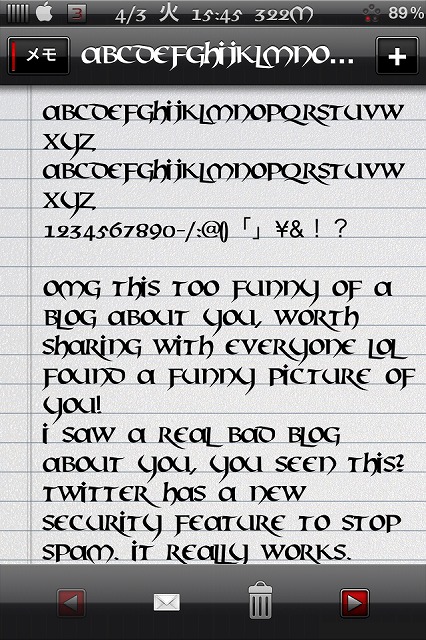 4/3 火 15:45 322M 89%
メモ ABCDEFGHIJKLMNO... +
ABCDEFGHIJKLMNOPQRSTUVW
XYZ
abcdefghijklmnopqrstuvw
xyz
1234567890-/:@()「」¥&！？
OMG this too funny of a
blog about you, worth
sharing with everyone LOL
Found a funny picture of
you!
i saw a real bad blog
about you, you seen this?
Twitter has a new
security feature to stop
spam. it really works.